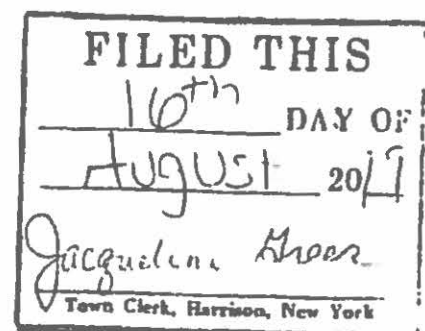 FILED THIS
16th DAY OF
August 2017
Jacqueline Greer
Town Clerk, Harrison, New York